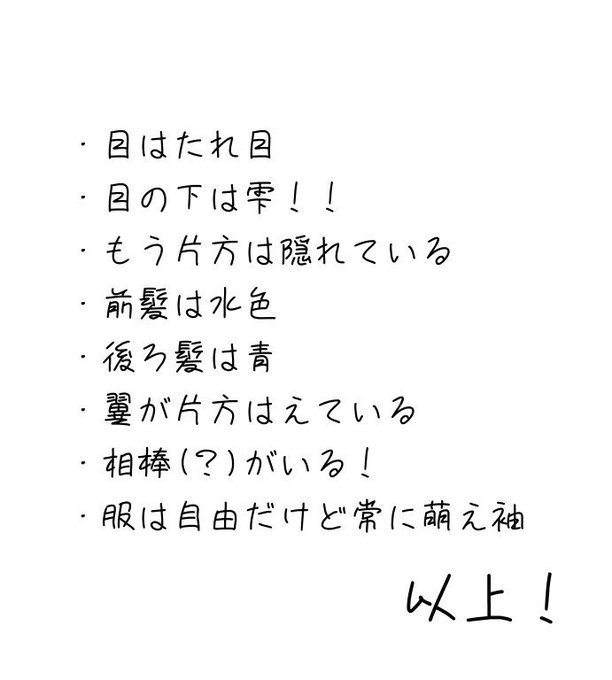 ・目はたれ目
・目の下は雫！！
・もう片方は隠れている
・前髪は水色
・後ろ髪は青
・翼が片方はえている
・相棒(？)がいる！
・服は自由だけど常に萌え袖
以上！